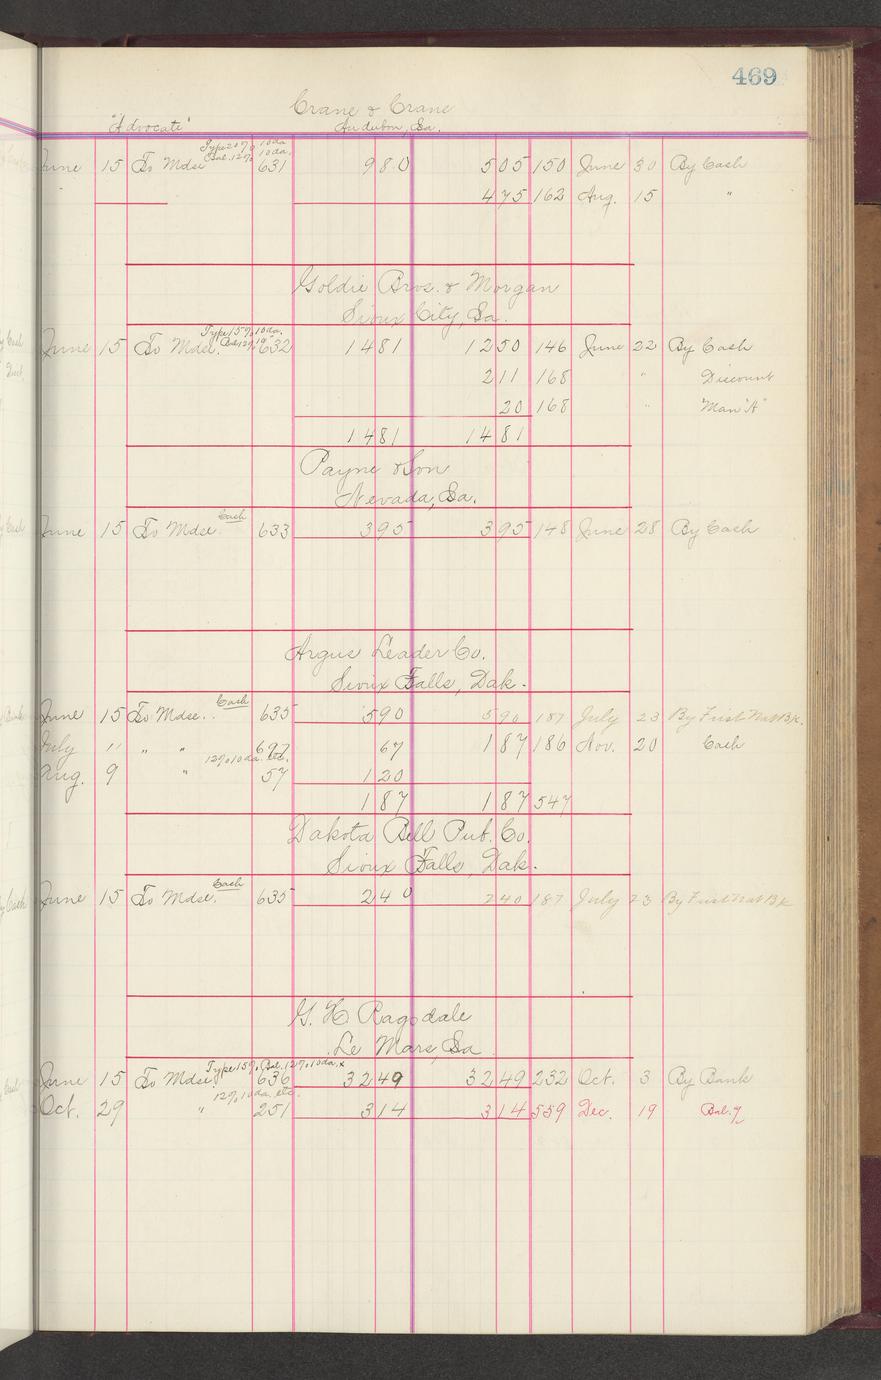 469
Crane & Crane
"Advocate" Audubon, Ia.
Type 20% 10 da
Bal. 12% 10 da.
June 15 To Mdse 631 980 505 150 June 30 By Cash
475 162 Aug. 15 "
Goldie Bros. & Morgan
Sioux City, Ia.
Type 15% 10 da.
June 15 To Mdse. 632 1481 1250 146 June 22 By Cash
211 168 " Discount
20 168 " "Man "A"
1481 1481
Payne & Son
Nevada, Ia.
Cash
June 15 To Mdse 633 395 395 148 June 28 By Cash
Argus Leader Co.
Sioux Falls, Dak.
Cash
June 15 To Mdse. 635 590 590 187 July 23 By First Nat Bk.
July 11 " " 697 67 187 186 Nov. 20 Cash
12% 10 da. etc.
Aug. 9 " 57 120
187 187 547
Dakota Bell Pub. Co.
Sioux Falls, Dak.
Cash
June 15 To Mdse. 635 240 240 187 July 23 By First Nat Bk
G. H. Ragsdale
Le Mars, Ia
Type 15%, Bal. 12% 10 da. x
June 15 To Mdse. 636 3249 3249 232 Oct. 3 By Bank
12% 10 da. etc.
Oct. 29 " 251 314 314 559 Dec. 19 Bal. 7